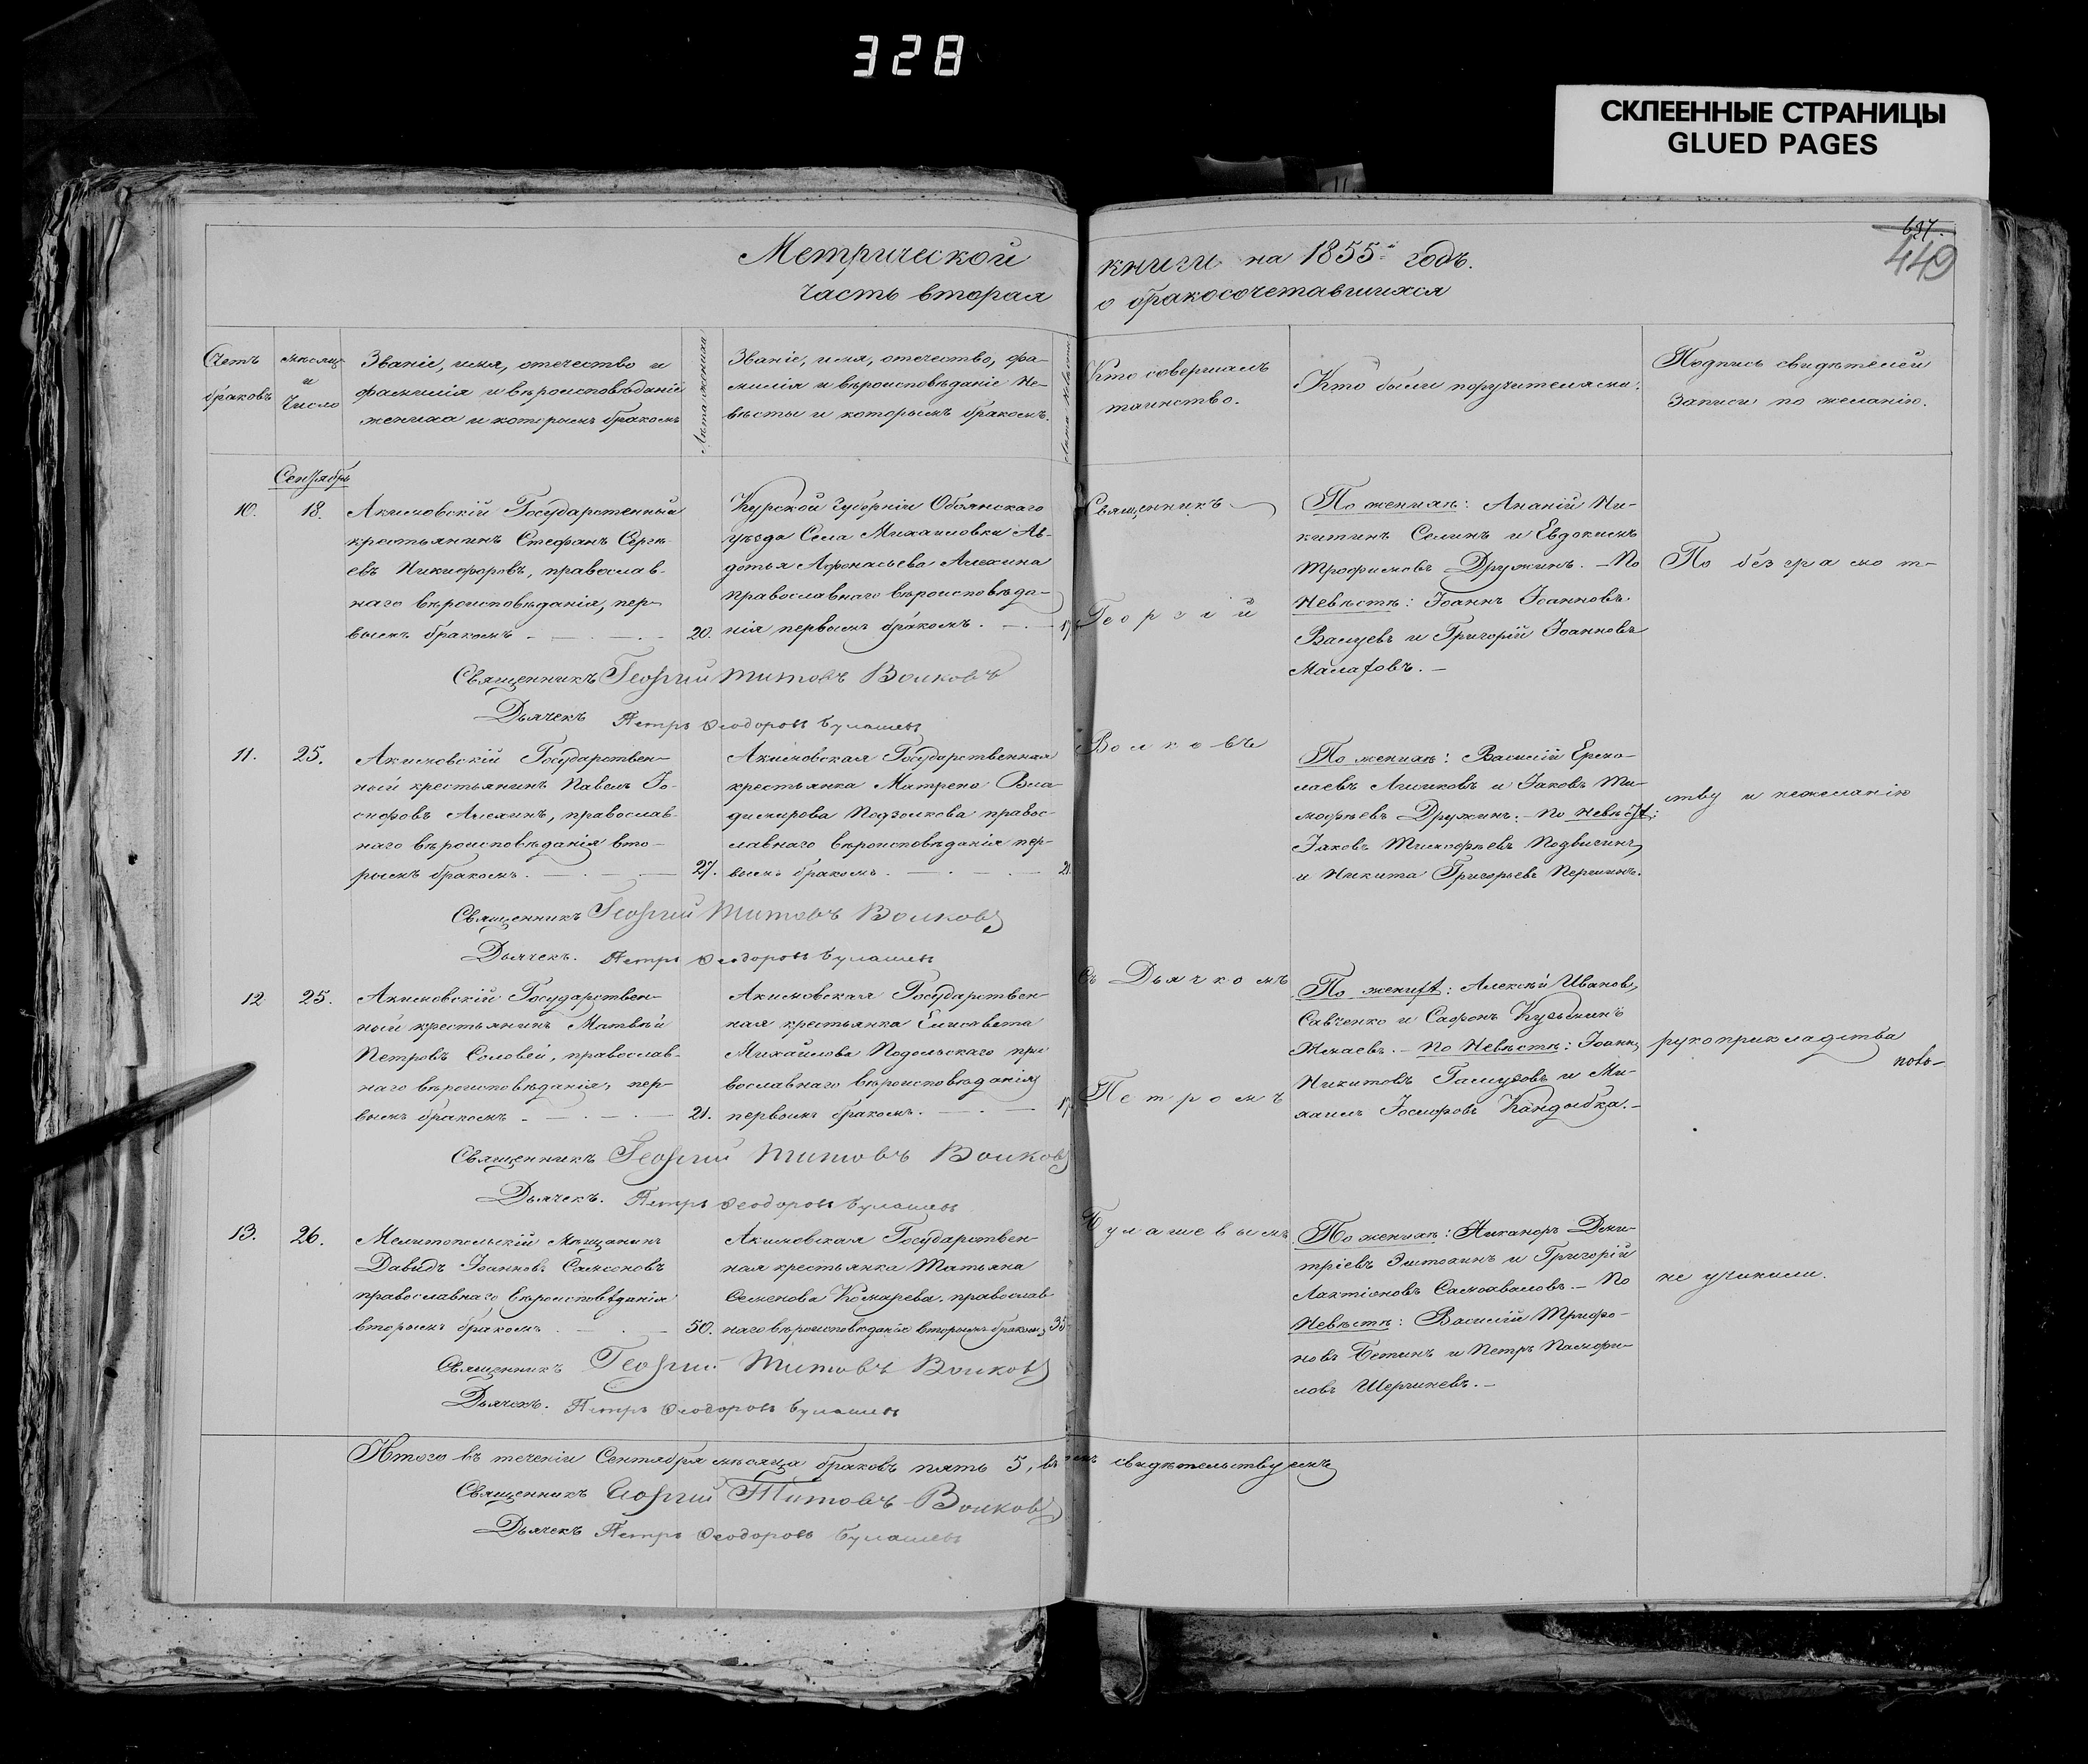 328
СКЛЕЕННЫЕ СТРАНИЦЫ
GLUED PAGES
637.
449
Метрической
часть вторая
книги на 1855й годъ.
о бракосочетавшихся
Счетъ
браковъ
мѣсяц
и
Число
Званіе, имя, отечество и
фамилія и вѣроисповѣданіе
жениха и которымъ бракомъ
Лѣта жениха
Званіе, имя, отечество, фа-
милія и вѣроисповѣданіе Не-
вѣсты и которымъ бракомъ.
Кто совершалъ
таинство.
Кто были поручителями.
Подпись свидѣтелей
Записи по желанію.
Сентябрь
10.
18.
Акимовскій Государственный
крестьянинъ Стефанъ Сергѣ-
евъ Никифоровъ, православ-
наго вѣроисповѣданія, пер-
вымъ бракомъ
20.
Курской Губерніи Обоянскаго
уѣзда Села Михаиловки Ав-
дотья Афонасьева Алехина
православнаго вѣроисповѣда-
нія первымъ бракомъ.
17
Священникъ
Георгій
По женихѣ: Ананій Ни-
китинъ Селинъ и Евдокимъ
Трофимовъ Дружинъ. - По
Невѣстѣ: Іоаннъ Іоанновъ
Валуевъ и Григорій Іоанновъ
Малафовъ. -
По безграмот-
Священникъ Георгий Титовъ Волковъ
Дьячекъ Петръ Ѳеодоровъ Булашевъ
11.
25.
Акимовскій Государствен-
ный крестьянинъ Павелъ Іо-
сифовъ Алехинъ, православ-
наго вѣроисповѣданія вто-
рымъ бракомъ.
27.
Акимовская Государственная
крестьянка Матрена Вла-
димирова Подзолкова правос-
лавнаго вѣроисповѣданія пер-
вымъ бракомъ.
21
Волковъ
По женихѣ: Василій Ермо-
лаевъ и Іаковъ Ти-
мофѣевъ Дружинъ. - По Невѣстѣ:
Іаковъ Тимофѣевъ Подвигинъ
и Никита Григорьевъ Першинъ.
ству и нежеланію
Священникъ Георгий Титовъ Волковъ
Дьячекъ. Петръ Ѳеодоровъ Булашевъ
12
25.
Акимовскій Государствен-
ный крестьянинъ Матвѣй
Петровъ Соловей, православ-
наго вѣроисповѣданія, пер-
вымъ бракомъ
21.
Акимовская Государствен-
ная крестьянка Елисавета
Михайлова Подольскаго пра-
вославнаго вѣроисповѣданія
первымъ бракомъ.
17
Съ Дьячкомъ
Петромъ
По женихѣ: Алексѣй Иванов
Савченко и Сафонъ Кузьминъ
Жмаевъ. - По Невѣстѣ: Іоаннъ
Никитовъ и Ми-
хаилъ Іосифовъ Кандыбка. -
рукоприкладства
Священникъ Георгий Титовъ Волковъ
Дьячекъ. Петръ Ѳеодоровъ Булашевъ
13.
26.
Мелитопольскій Мѣщанинъ
Давидъ Іоанновъ Самсоновъ
православнаго вѣроисповѣданія
вторымъ бракомъ
50.
Акимовская Государствен-
ная крестьянка Татьяна
Семенова Комарева, православ-
наго вѣроисповѣданія вторымъ бракомъ
35
Булашевымъ
По женихѣ: Никаноръ Дми-
тріевъ и Григорій
Лактіоновъ Самохваловъ. - По
Невѣстѣ: Василій Трифо-
новъ Бетинъ и Петръ Памфи-
ловъ Шершневъ. -
не учинили.
Священникъ Георгий Титовъ Волковъ
Дьячекъ. Петръ Ѳеодоровъ Булашевъ
Итого въ теченіи Сентября мѣсяца браковъ пять 5, въ чемъ свидѣтельствуемъ
Священникъ Георгий Титовъ Волковъ
Дьячекъ Петръ Ѳеодоровъ Булашевъ